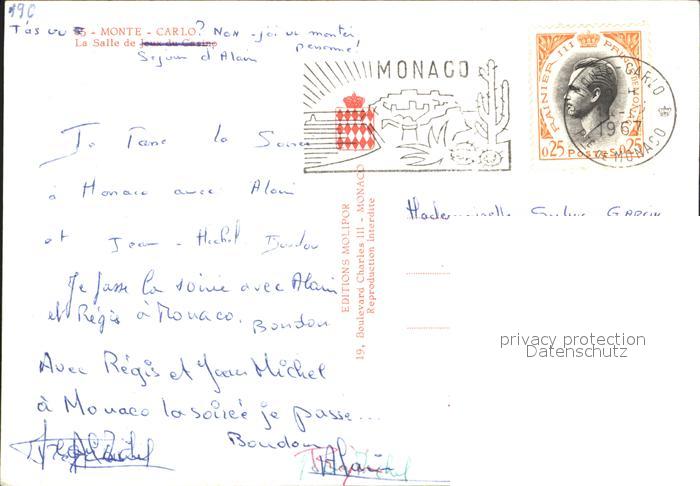 190
T'as vu 5 - MONTE - CARLO? Non - j'ai vu monter
La Salle de Jeux du Casino personne!
Séjour d'Alain
MONACO
RAINIER III PRINCE DE MONACO
0,25 POSTES 0,25
CARLO
1967
DE MONACO
Je Passe la Soirée
à Monaco avec Alain
et Jean-Michel Boudou
Je passe la soirée avec Alain
et Régis à Monaco.
Boudou
Avec Régis et Jean Michel
à Monaco la soirée je passe...
Boudou
EDITIONS MOLIPOR
19, Boulevard Charles III - MONACO
Reproduction Interdite
Mademoiselle Sylvie
privacy protection
Datenschutz